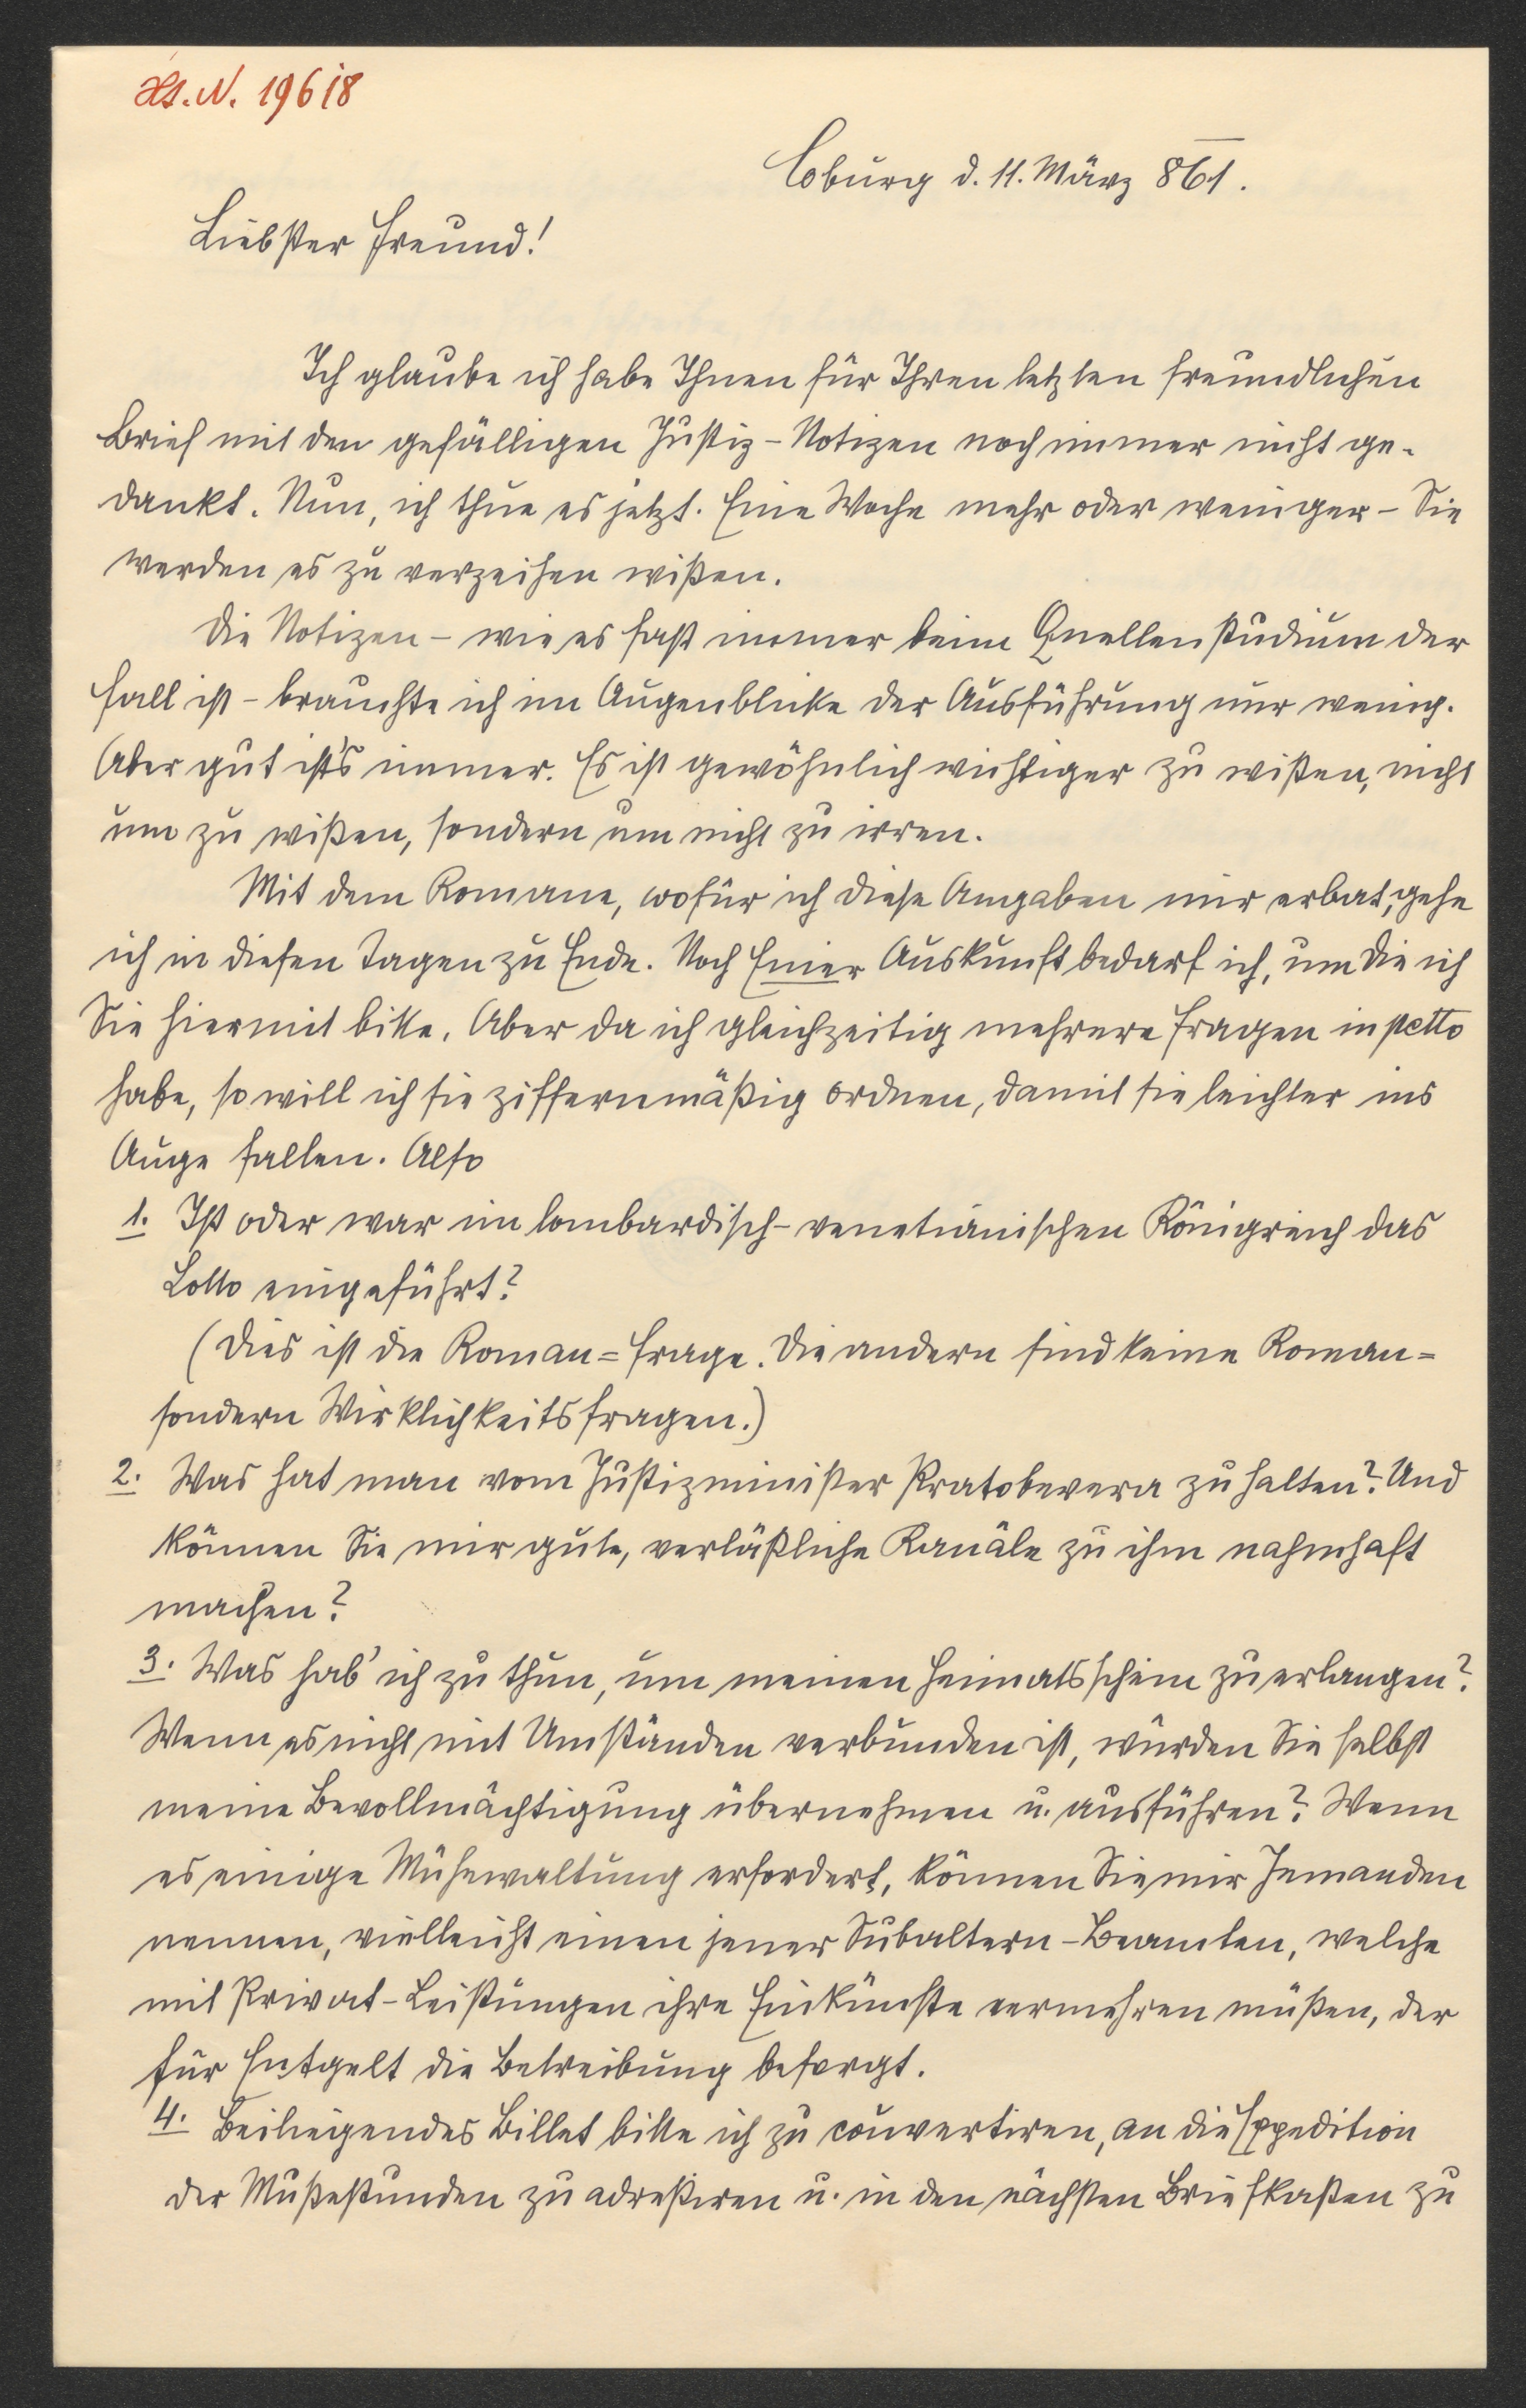 Hs. N. 19618
Coburg d. 11. März 861.
Liebster Freund!
Ich glaube ich habe Ihnen für Ihren letzten freundlichen
Brief mit den gefälligen Justiz-Notizen noch immer nicht ge-
dankt. Nun, ich thue es jetzt. Eine Woche mehr oder weniger – Sie
werden es zu verzeihen wißen.
Die Notizen – wie es fast immer beim Quellenstudium der
Fall ist – brauchte ich im Augenblicke der Ausführung nur wenig.
Aber gut ist's immer. Es ist gewöhnlich wichtiger zu wißen, nicht
um zu wißen, sondern um nicht zu irren.
Mit dem Romane, wofür ich diese Angaben mir erbat, gehe
ich in diesen Tagen zu Ende. Noch Einer Auskunft bedarf ich, um die ich
Sie hiermit bitte. Aber da ich gleichzeitig mehrere Fragen in petto
habe, so will ich sie ziffernmäßig ordnen, damit sie leichter ins
Auge fallen. Also
1. Ist oder war im lombardisch-venetianischen Königreich das
Lotto eingeführt?
(Dies ist die Roman=Frage. Die andern sind keine Roman=
sondern Wirklichkeitsfragen.)
2. Was hat man vom Justizminister Pratobevera zu halten? Und
können Sie mir gute, verläßliche Kanäle zu ihm nahmhaft
machen?
3. Was hab' ich zu thun, um meinen Heimatsschein zu erlangen?
Wenn es nicht mit Umständen verbunden ist, würden Sie selbst
meine Bevollmächtigung übernehmen u. ausführen? Wenn
es einige Mühewaltung erfordert, können Sie mir Jemanden
nennen, vielleicht einen jener Subaltern-Beamten, welche
mit Privat-Leistungen ihre Einkünfte vermehren müßen, der
für Entgelt die Betreibung besorgt.
4. Beiliegendes Billet bitte ich zu couvertiren, an die Expedition
der Mußestunden zu adreßiren u. in den nächsten Briefkasten zu